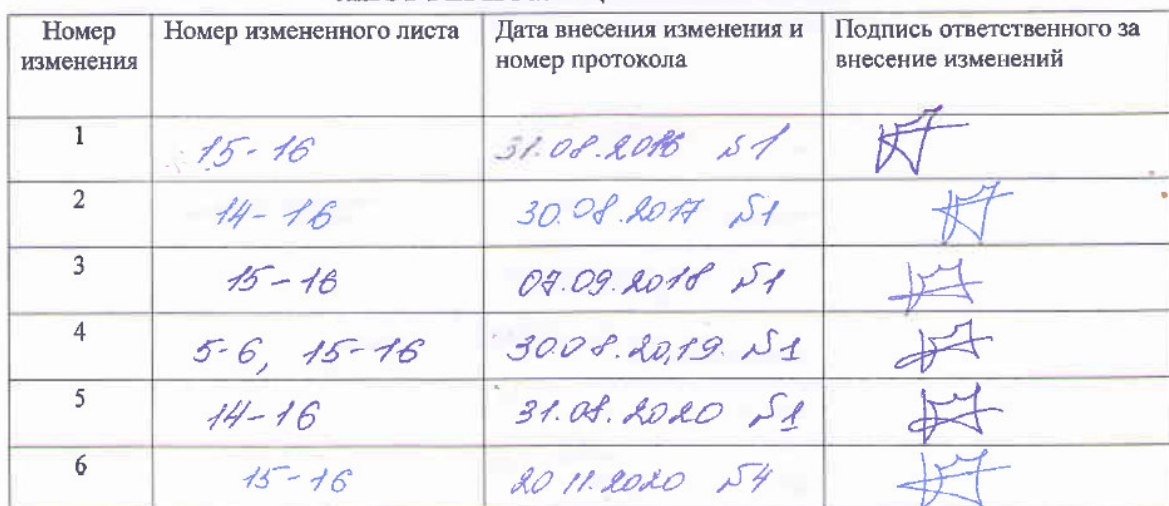 Номер изменения | Номер измененного листа | Дата внесения изменения и номер протокола | Подпись ответственного за внесение изменений
1 | 15-16 | 31.08.2016 №1
2 | 14-16 | 30.08.2017 №1
3 | 15-16 | 07.09.2018 №1
4 | 5-6, 15-16 | 30.08.2019. №1
5 | 14-16 | 31.08.2020 №1
6 | 15-16 | 20.11.2020 №4